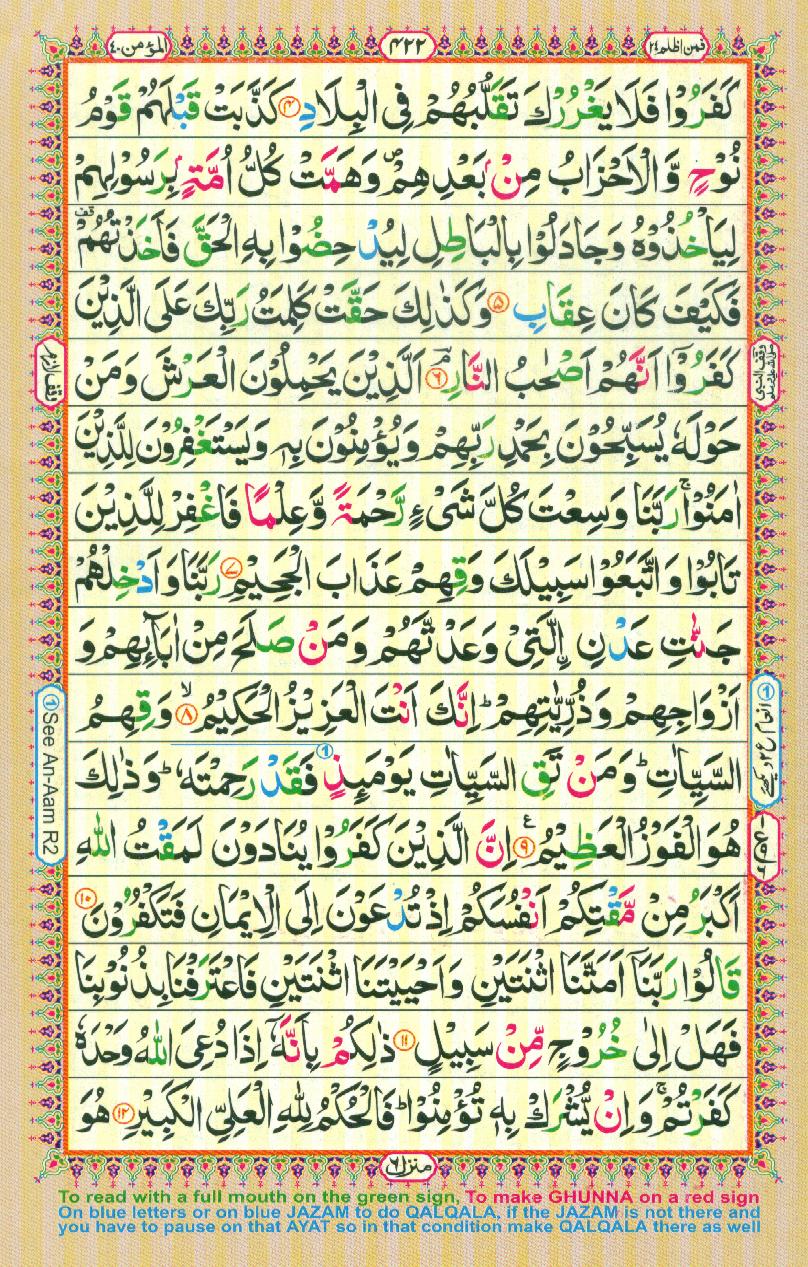 فمن اظلم ٢٤ ٤٢٢ المؤمن ٤٠
كَفَرُوْا فَلَا يَغْرُرْكَ تَقَلُّبُهُمْ فِى الْبِلَادِ ۴ كَذَّبَتْ قَبْلَهُمْ قَوْمُ
نُوْحٍ وَّ الْاَحْزَابُ مِنْۢ بَعْدِهِمْ ۪ وَهَمَّتْ كُلُّ اُمَّةٍۭ بِرَسُوْلِهِمْ
لِيَاْخُذُوْهُ وَجَادَلُوْا بِالْبَاطِلِ لِيُدْحِضُوْا بِهِ الْحَقَّ فَاَخَذْتُهُمْ قف
فَكَيْفَ كَانَ عِقَابِ ۵ وَكَذٰلِكَ حَقَّتْ كَلِمَتُ رَبِّكَ عَلَى الَّذِيْنَ
كَفَرُوْۤا اَنَّهُمْ اَصْحٰبُ النَّارِ ۘ ۶ اَلَّذِيْنَ يَحْمِلُوْنَ الْعَرْشَ وَمَنْ
حَوْلَهٗ يُسَبِّحُوْنَ بِحَمْدِ رَبِّهِمْ وَيُؤْمِنُوْنَ بِهٖ وَيَسْتَغْفِرُوْنَ لِلَّذِيْنَ
اٰمَنُوْا ۚ رَبَّنَا وَسِعْتَ كُلَّ شَىْءٍ رَّحْمَةً وَّعِلْمًا فَاغْفِرْ لِلَّذِيْنَ
تَابُوْا وَاتَّبَعُوْا سَبِيْلَكَ وَقِهِمْ عَذَابَ الْجَحِيْمِ ۷ رَبَّنَا وَاَدْخِلْهُمْ
جَنّٰتِ عَدْنِ ۨالَّتِىْ وَعَدْتَّهُمْ وَمَنْ صَلَحَ مِنْ اٰبَآىِٕهِمْ وَ
اَزْوَاجِهِمْ وَذُرِّيّٰتِهِمْ ؕ اِنَّكَ اَنْتَ الْعَزِيْزُ الْحَكِيْمُ ۙ ۸ وَقِهِمُ
السَّيِّاٰتِ ؕ وَمَنْ تَقِ السَّيِّاٰتِ يَوْمَىِٕذٍ ① فَقَدْ رَحِمْتَهٗ ؕ وَذٰلِكَ
هُوَ الْفَوْزُ الْعَظِيْمُ ۹ ع اِنَّ الَّذِيْنَ كَفَرُوْا يُنَادَوْنَ لَمَقْتُ اللّٰهِ
اَكْبَرُ مِنْ مَّقْتِكُمْ اَنْفُسَكُمْ اِذْ تُدْعَوْنَ اِلَى الْاِيْمَانِ فَتَكْفُرُوْنَ ۱۰
قَالُوْا رَبَّنَاۤ اَمَتَّنَا اثْنَتَيْنِ وَاَحْيَيْتَنَا اثْنَتَيْنِ فَاعْتَرَفْنَا بِذُنُوْبِنَا
فَهَلْ اِلٰى خُرُوْجٍ مِّنْ سَبِيْلٍ ۱۱ ذٰلِكُمْ بِاَنَّهٗۤ اِذَا دُعِىَ اللّٰهُ وَحْدَهٗ
كَفَرْتُمْ ۚ وَاِنْ يُّشْرَكْ بِهٖ تُؤْمِنُوْا ؕ فَالْحُكْمُ لِلّٰهِ الْعَلِىِّ الْكَبِيْرِ ۱۲ هُوَ
وقف لازم
① See An-Aam R2
منزل ٦
To read with a full mouth on the green sign, To make GHUNNA on a red sign
On blue letters or on blue JAZAM to do QALQALA, if the JAZAM is not there and
you have to pause on that AYAT so in that condition make QALQALA there as well